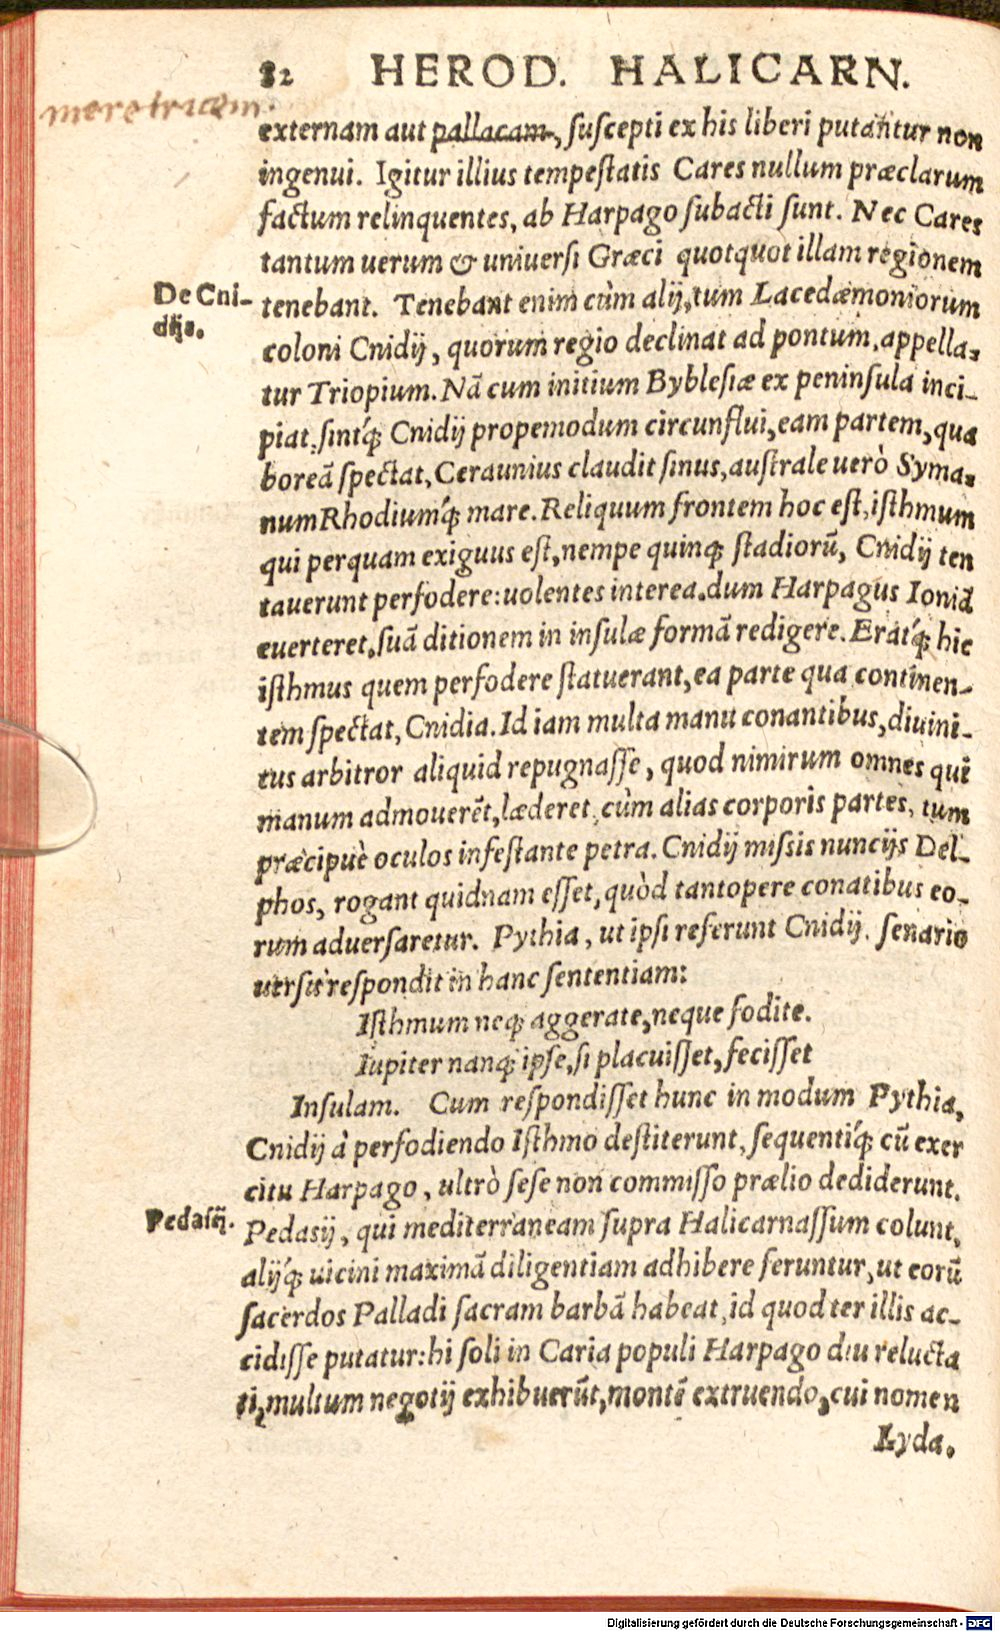 82 HEROD. HALICARN.
meretricem
externam aut pallacam, ſuſcepti ex his liberi putantur non
ingenui. Igitur illius tempeſtatis Cares nullum præclarum
factum relinquentes, ab Harpago ſubacti ſunt. Nec Cares
tantum uerum & uniuerſi Græci quotquot illam regionem
De Cni-
dijs.
tenebant. Tenebant enim cùm alij, tum Lacedæmoniorum
coloni Cnidij, quorum regio declinat ad pontum, appella-
tur Triopium. Nã cum initium Bybleſiæ ex peninſula inci-
piat, ſintq́; Cnidij propemodum circunflui, eam partem, qua
boreã ſpectat, Ceraunius claudit ſinus, auſtrale uerò Syma-
num Rhodiumq́; mare. Reliquum frontem hoc eſt, iſthmum
qui perquam exiguus eſt, nempe quinq; ſtadiorũ, Cnidij ten
tauerunt perfodere: uolentes interea, dum Harpagus Ioniã
euerteret, ſuã ditionem in inſulæ formã redigere. Eratq́; hic
iſthmus quem perfodere ſtatuerant, ea parte qua continen-
tem ſpectat, Cnidia. Id iam multa manu conantibus, diuini-
tus arbitror aliquid repugnaſſe, quod nimirum omnes qui
manum admouerẽt, læderet, cùm alias corporis partes, tum
præcipuè oculos infeſtante petra. Cnidij miſsis nuncijs Del-
phos, rogant quidnam eſſet, quòd tantopere conatibus eo-
rum aduerſaretur. Pythia, ut ipſi referunt Cnidij, ſenario
uerſu reſpondit in hanc ſententiam:
Iſthmum neq; aggerate, neque fodite.
Iupiter nanq; ipſe, ſi placuiſſet, feciſſet
Inſulam. Cum reſpondiſſet hunc in modum Pythia,
Cnidij à perfodiendo Iſthmo deſtiterunt, ſequentiq́; cũ exer
citu Harpago, ultrò ſeſe non commiſſo prælio dediderunt.
Pedaſij.
Pedasij, qui mediterraneam ſupra Halicarnaſſum colunt,
alijq́; uicini maximã diligentiam adhibere feruntur, ut eorũ
ſacerdos Palladi ſacram barbã habeat, id quod ter illis ac-
cidiſſe putatur: hi ſoli in Caria populi Harpago diu relucta
ti, multum negotij exhibuerũt, montẽ extruendo, cui nomen
Lyda.
Digitalisierung gefördert durch die Deutsche Forschungsgemeinschaft - DFG